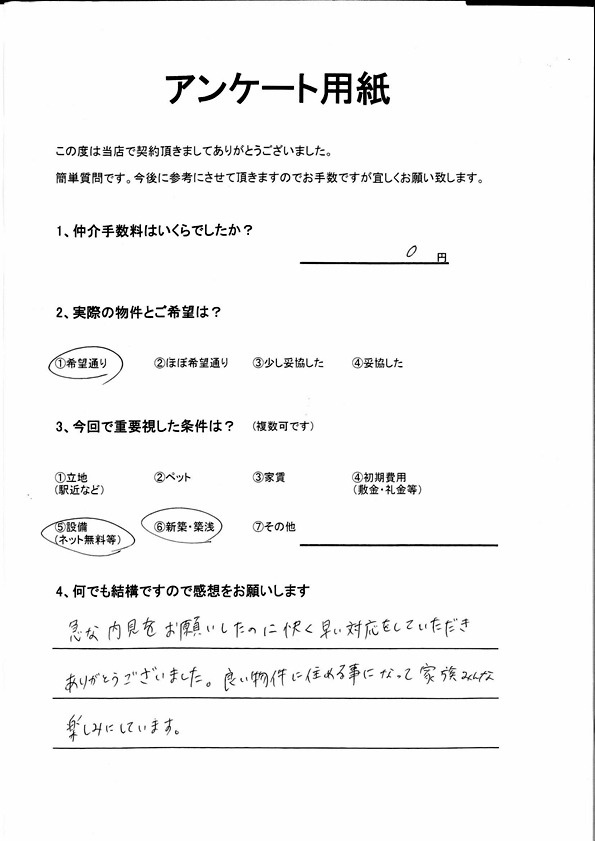 アンケート用紙
この度は当店で契約頂きましてありがとうございました。
簡単質問です。今後に参考にさせて頂きますのでお手数ですが宜しくお願い致します。
1、仲介手数料はいくらでしたか？
0 円
2、実際の物件とご希望は？
①希望通り ②ほぼ希望通り ③少し妥協した ④妥協した
3、今回で重要視した条件は？ （複数可です）
①立地 ②ペット ③家賃 ④初期費用
（駅近など） （敷金・礼金等）
⑤設備 ⑥新築・築浅 ⑦その他
（ネット無料等）
4、何でも結構ですので感想をお願いします
急な内見をお願いしたのに快く早い対応をしていただき
ありがとうございました。良い物件に住める事になって家族みんな
楽しみにしています。